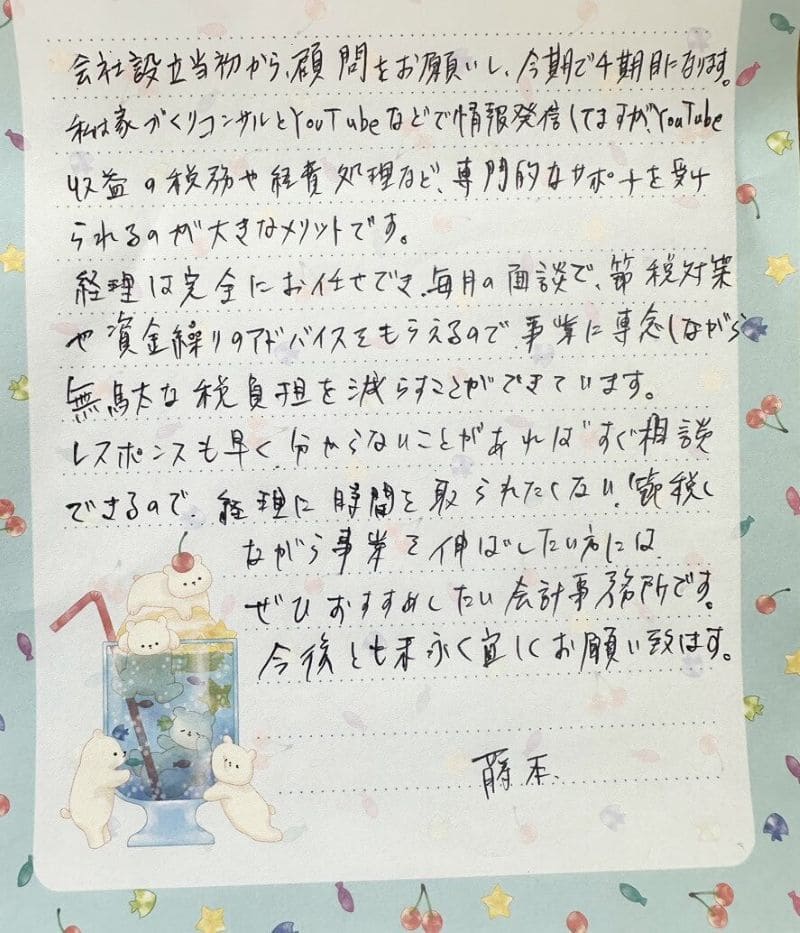 会社設立当初から、顧問をお願いし、今期で4期目になります。
私は家づくりコンサルとYouTubeなどで情報発信してますが、YouTube
収益の税務や経費処理など、専門的なサポートを受け
られるのが大きなメリットです。
経理は完全にお任せでき、毎月の面談で、節税対策
や資金繰りのアドバイスをもらえるので、事業に専念しながら
無駄な税負担を減らすことができています。
レスポンスも早く、分からないことがあればすぐ相談
できるので、経理に時間を取られたくない、節税し
ながら事業を伸ばしたい方には、
ぜひおすすめしたい会計事務所です。
今後とも末永く宜しくお願い致します。
藤本